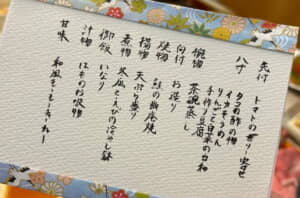 先付 トマトのゼリー寄せ
八寸 タコの酢の物
イカそうめん
りんごと白菜の甘和
手作り豆腐
椀物 茶碗蒸し
向付 お造り
焼物 鮭の幽庵焼
揚物 天ぷら盛り
煮物 冬瓜とえびの冷やし鉢
御飯 いなり
汁物 はものお吸物
甘味 和風